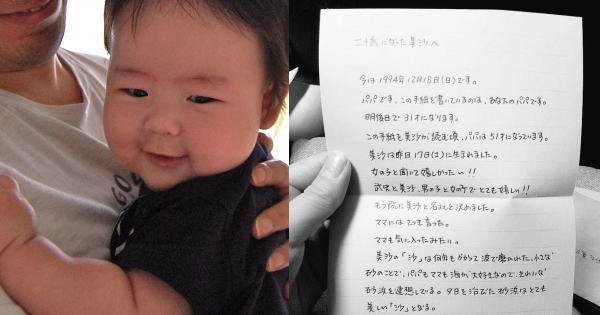 二十歳になった美沙へ
今は1994年12月18日(日)です。
パパです、この手紙を書いているのは、あなたのパパです。
明後日で31才になります。
この手紙を美沙が読む頃、パパは51才になっています。
美沙は昨日17日(土)に生まれました。
女の子と聞いて嬉しかったー!!
武史と美沙、男の子と女の子でとても嬉しい!!
もう前に美沙と名前を決めました。
ママには 言った。
ママも気に入ったみたい。
美沙の「沙」は何年もかかって波で磨かれた、小さな
砂のことで、パパもママも海が大好きなので、きれいな
砂浜を連想している。夕日を浴びた砂浜はとても
美しい「沙」となる。